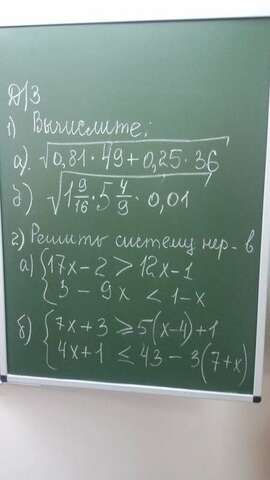 Д/З
1) Вычислите:
а). √0,81·49+0,25·36
б) √1 9/16 · 5 4/9 · 0,01
2) Решить систему нер-в
а) {17x-2 > 12x-1
3 - 9x < 1-x
б) {7x+3 ⩾ 5(x-4)+1
4x+1 ≤ 43-3(7+x)